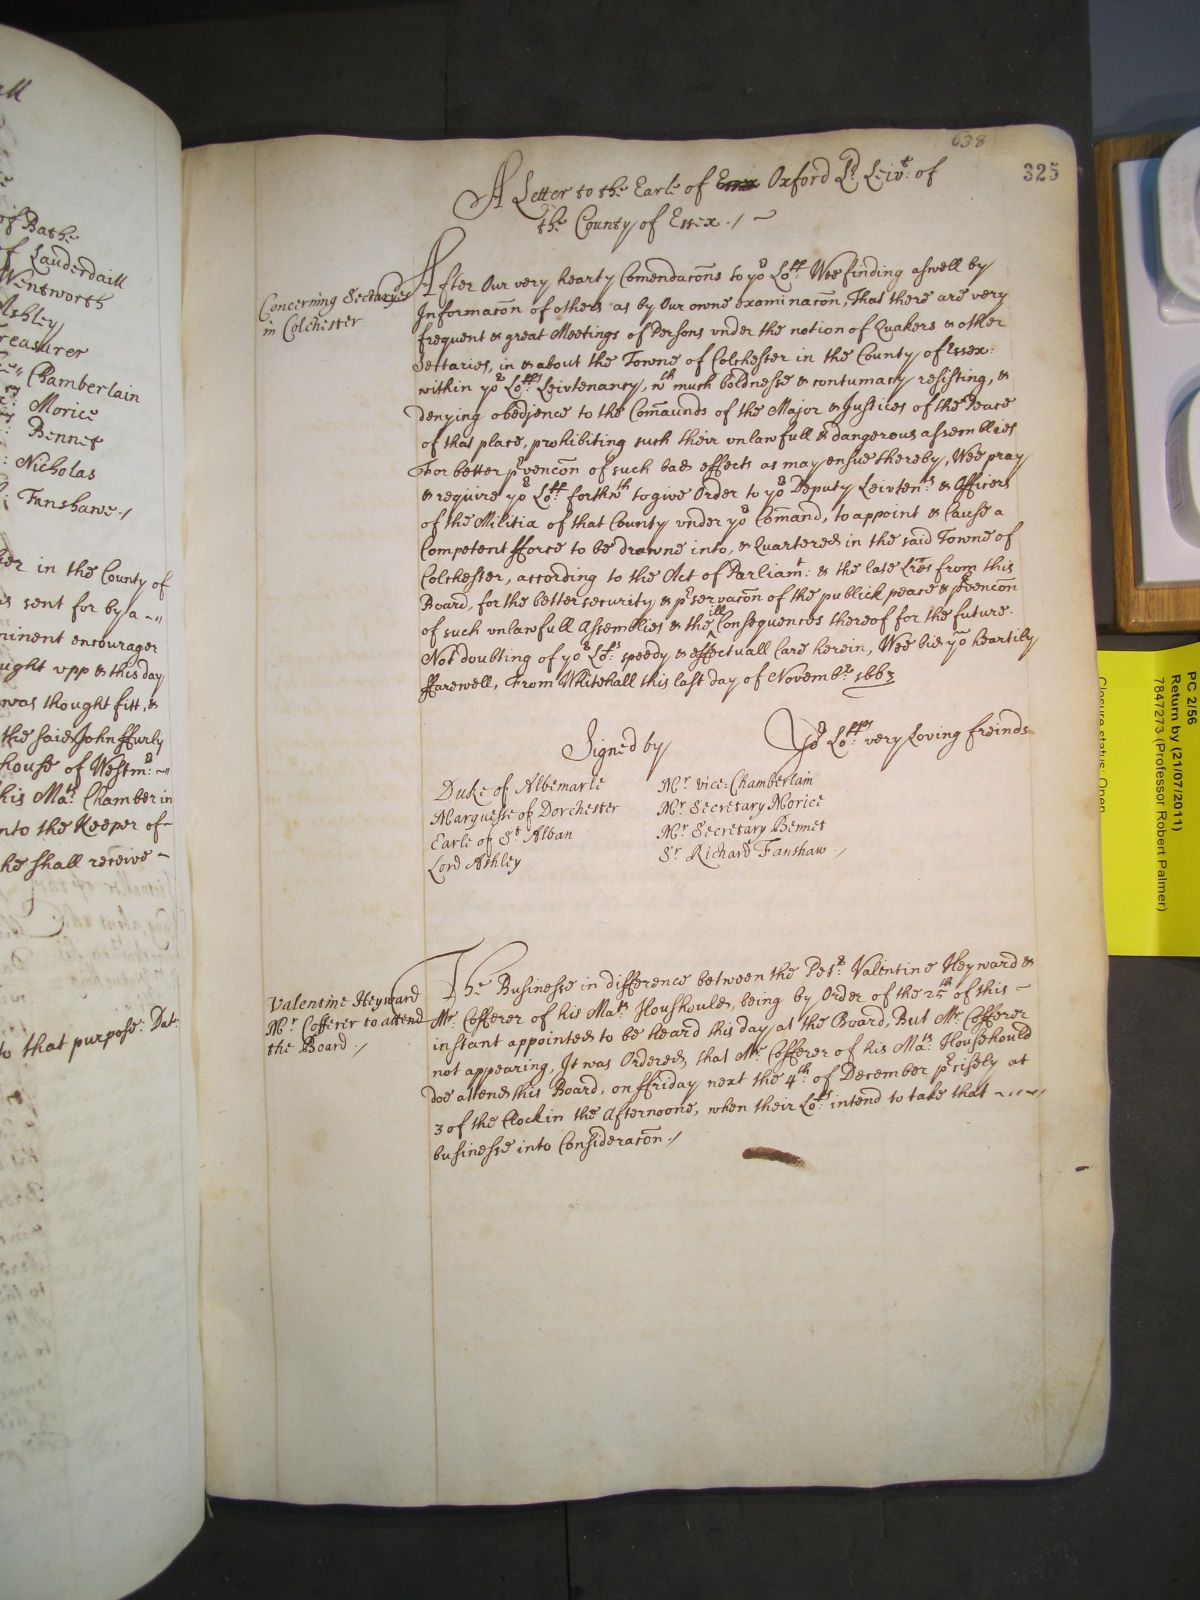 of Bathe
of Lauderdaill
Wentworth
Ashley
Treasurer
Chamberlain
Morice
Bennet
Nicholas
Fanshawe./
in the County of
sent for by a
minent encourager
ught vpp & this day
was thought fitt, &
the said John ffurly
house of Westmr:
his Mats Chamber in
nto the Keeper of
he shall receive
to that purpose: Dat:
638
325
A Letter to the Earle of Essex Oxford Ld Leivt: of
the County of Essex ./
Concerning Sectaryes
in Colchester
After Our very hearty Comendacons to yor Lopp: Wee finding aswell by
Informacon of others as by Our owne examinacon, That there are very
frequent & great Meetings of Persons vnder the notion of Quakers & other
Settaries, in & about the Towne of Colchester in the County of Essex:
within yor Lopps: Leivtenancy, wth much boldnesse & contumacy resisting, &
denying obedjence to the Comaunds of the Major & Justices of the Peace
of that place, prohibiting such their vnlawfull & dangerous assemblies
For better prvencon of such bad effects as may ensue thereby, Wee pray
& require yor Lopp: forthwth to give Order to yor Deputy Leivtents & Officers
of the Militia of that County vnder yor Comand, to appoint & Cause a
Competent fforce to be drawne into, & Quartered in the said Towne of
Colchester, according to the Act of Parliamt: & the late Lres from this
Board, for the better security & prservacon of the publick peace & prvencon
of such vnlawfull Assemblies & the ill Consequences thereof for the future.
Not doubting of yor Lops: speedy & effectuall Care herein, Wee bid yo heartily
ffarewell, From Whitehall this last day of Novembr 1663
Signed by
Yor Lopps: very Loving freinds
Duke of Albemarle
Marquesse of Dorchester
Earle of St Alban
Lord Ashley
Mr vice Chamberlain
Mr Secretary Morice
Mr Secretary Bennet
Sr Richard Fanshaw ./
Valentine Heyward
Mr Cofferer to attend
the Board ./
The Businesse in difference between the Petr Valentine Heyward &
Mr Cofferer of his Mats Houshould, being by Order of the 25th of this
instant appointed to be heard this day, at the Board, But Mr Cofferer
not appearing, It was Ordered, that Mr Cofferer of his Mats: Househould
doe attend this Board, on ffriday next the 4th of December prcisely at
3 of the Clock in the Afternoone, when their Lops: intend to take that
businesse into Consideracon ./
PC 2/56
Return by (21/07/2011)
7847273 (Professor Robert Palmer)
Closure status: Open